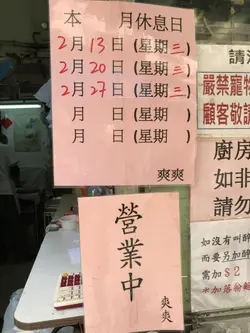 本 月休息日
2月13日(星期三)
2月20日(星期三)
2月27日(星期三)
月 日(星期 )
月 日(星期 )
爽爽
營業中
爽爽
嚴禁寵物
顧客敬請
廚房
如非
請勿
如沒有叫醉
而要另加醉
需加$2